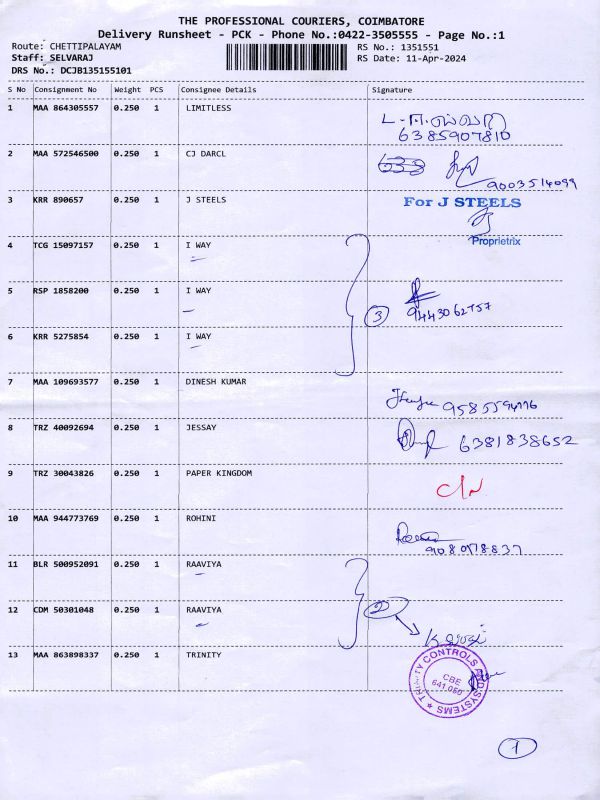 THE PROFESSIONAL COURIERS, COIMBATORE
Delivery Runsheet - PCK - Phone No.:0422-3505555 - Page No.:1
Route: CHETTIPALAYAM RS No.: 1351551
Staff: SELVARAJ RS Date: 11-Apr-2024
DRS No.: DCJB135155101
S No Consignment No Weight PCS Consignee Details Signature
1 MAA 864305557 0.250 1 LIMITLESS
6385907810
2 MAA 572546500 0.250 1 CJ DARCL
9003514099
3 KRR 890657 0.250 1 J STEELS For J STEELS
Proprietrix
4 TCG 15097157 0.250 1 I WAY
5 RSP 1858200 0.250 1 I WAY
3 9443062757
6 KRR 5275854 0.250 1 I WAY
7 MAA 109693577 0.250 1 DINESH KUMAR
8 TRZ 40092694 0.250 1 JESSAY 6381838652
9 TRZ 30043826 0.250 1 PAPER KINGDOM
10 MAA 944773769 0.250 1 ROHINI
11 BLR 500952091 0.250 1 RAAVIYA
12 CDM 50301048 0.250 1 RAAVIYA 2
13 MAA 863898337 0.250 1 TRINITY
TRINITY CONTROLS AND SYSTEMS
CBE
641 050
1